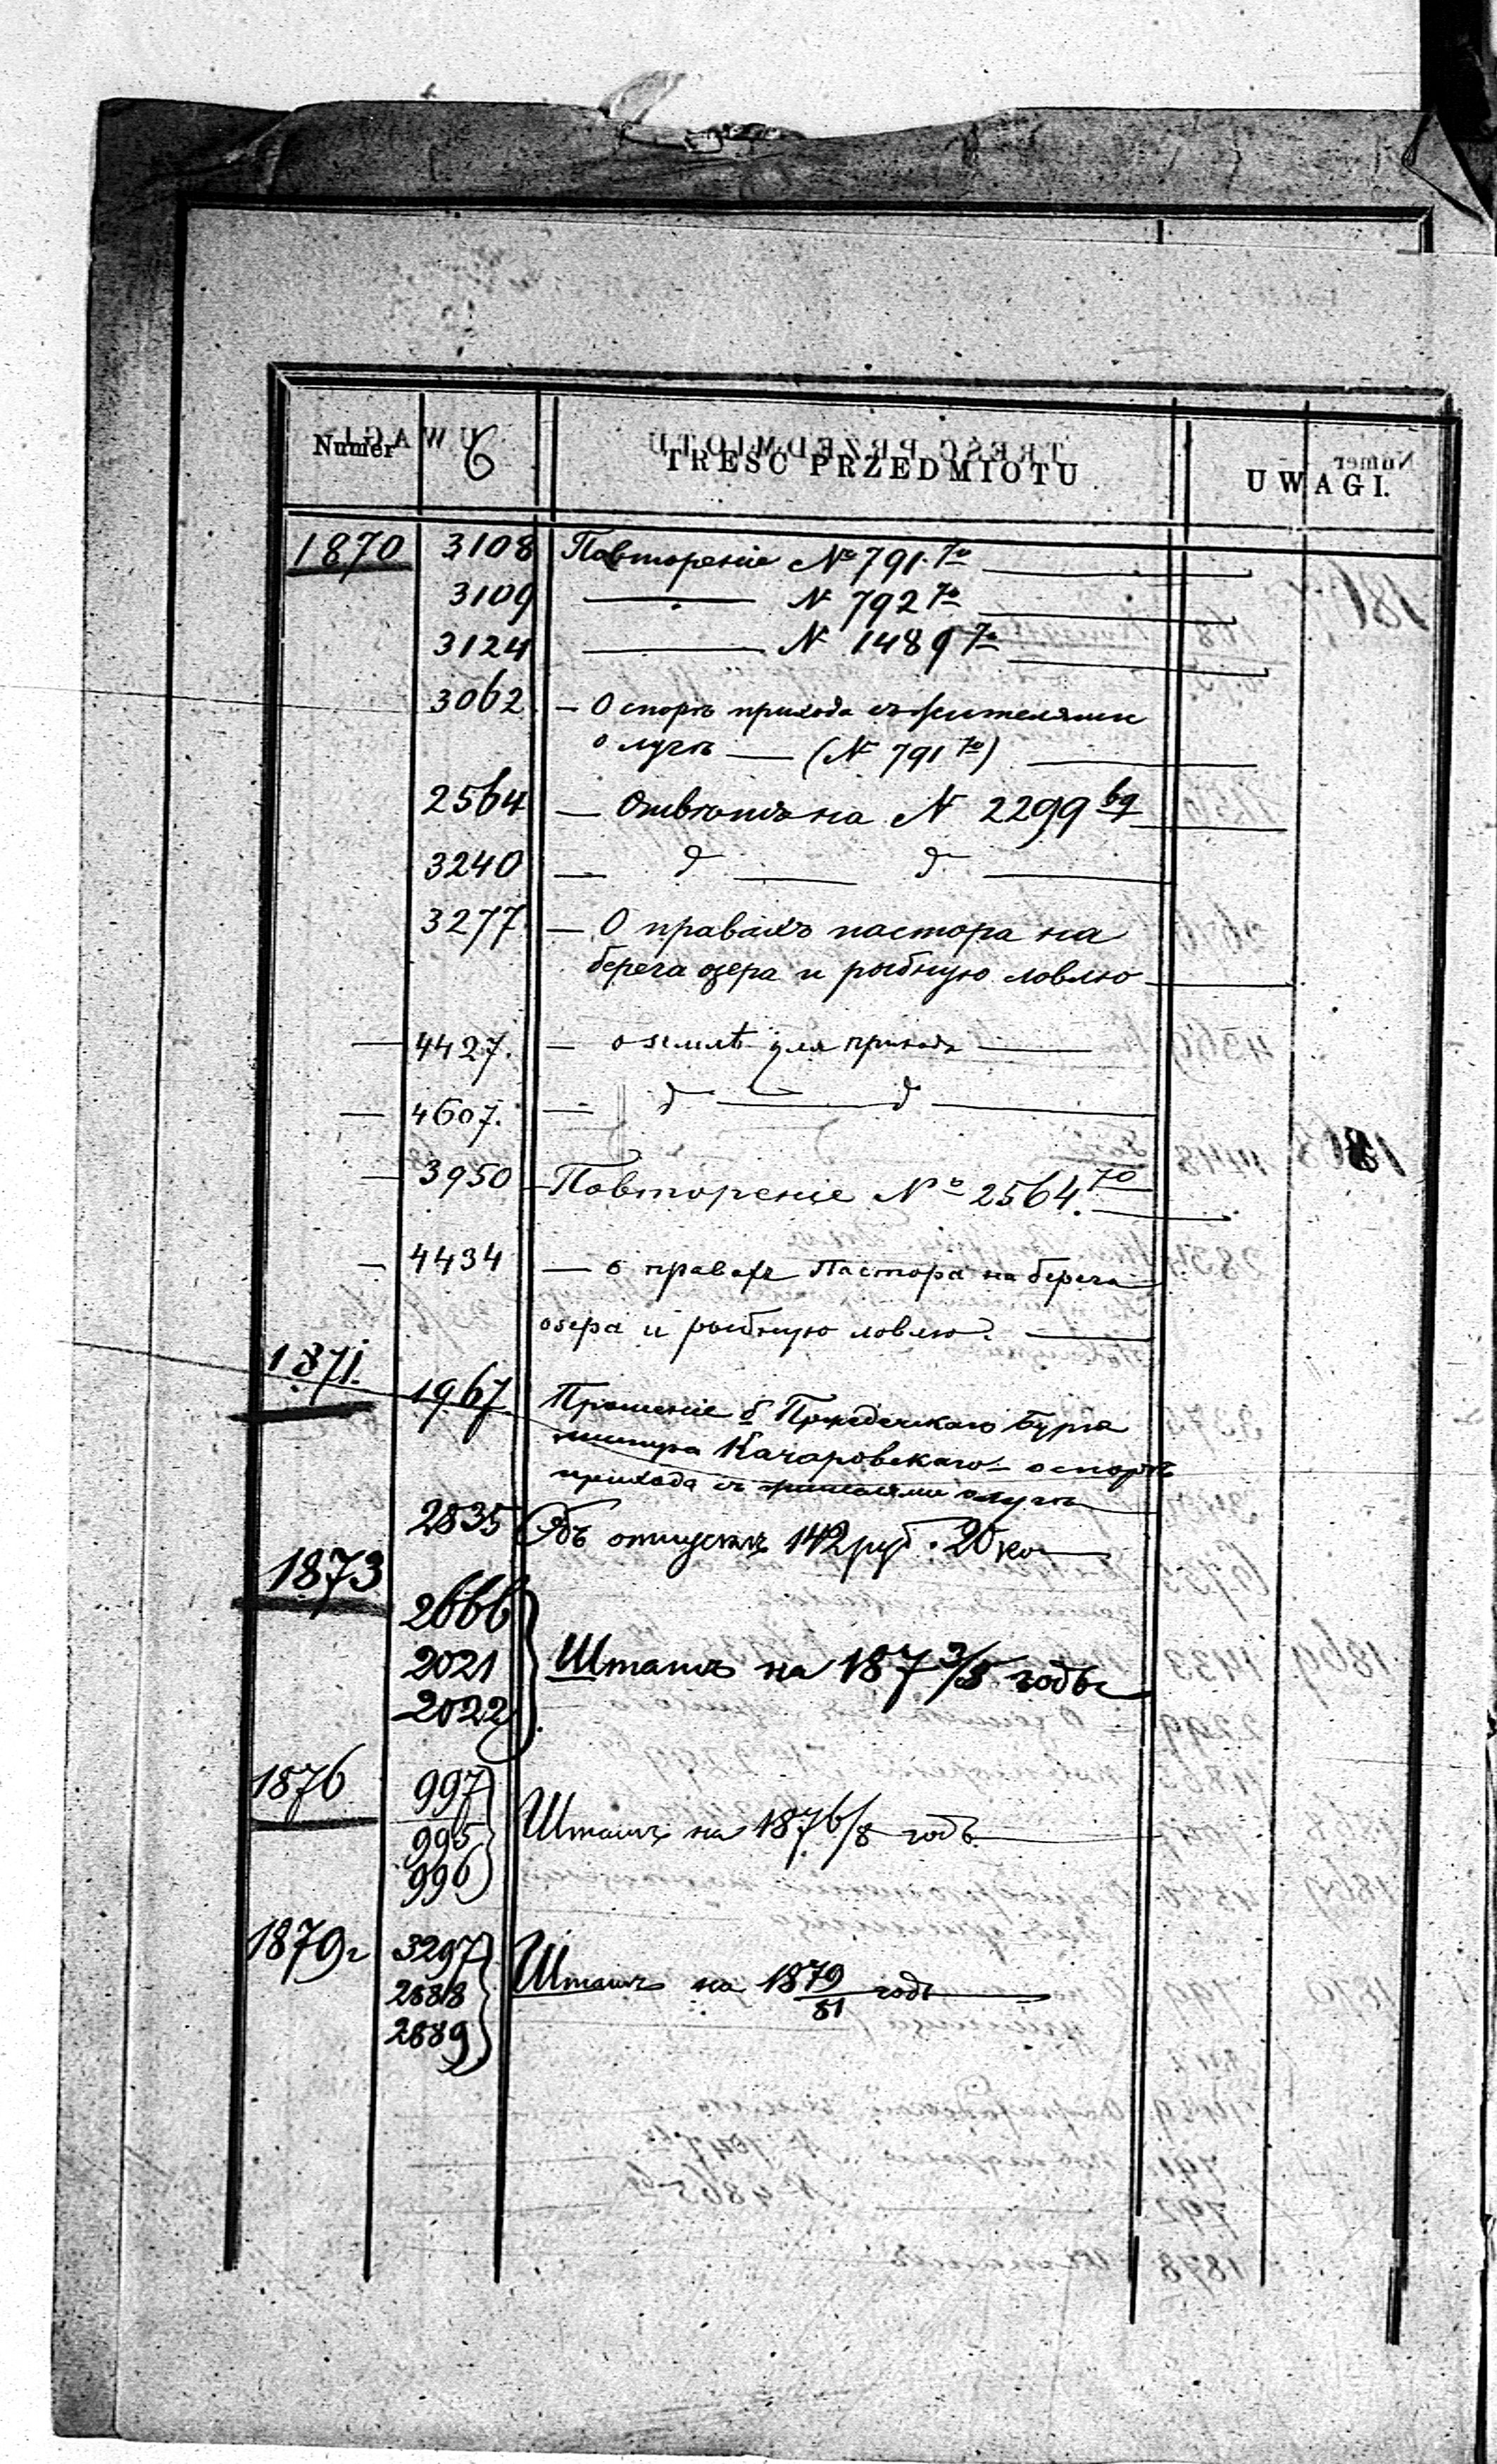 Numer 6 TREŚĆ PRZEDMIOTU UWAGI.
1870 3108 Повтореніе № 791.70
3109 — № 792 70
3124 — № 1489 70
3062 — О спорѣ прихода съ жителями
о лугѣ — (№ 791 70)
2564 — Отвѣтъ на № 2299 69
3240 — д — д —
3277 — О правахъ пастора на
берега озера и рыбную ловлю
— 4427. — о землѣ для прихода —
— 4607. — д — д —
— 3950 — Повтореніе № 2564.70
— 4434 — о правахъ Пастора на берега
озера и рыбную ловлю. —
1871. 1967 Прошеніе б. Бурго
мистра Качаровскаго о спорѣ
прихода съ жителями о лугѣ
2835 Объ отпускѣ 142 руб. 20 ко
1873
2666
2021 Штатъ на 187 3/5 годы
2022
1876 997
995 Штатъ на 1876/8 годъ
996
1879г 3297
2888 Штатъ на 1879/81 годъ
2889